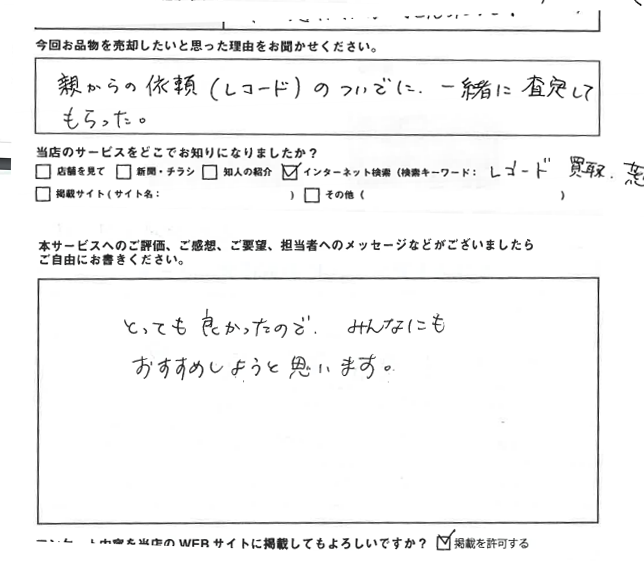 今回お品物を売却したいと思った理由をお聞かせください。
親からの依頼(レコード)のついでに、一緒に査定して
もらった。
当店のサービスをどこでお知りになりましたか?
□店舗を見て □新聞・チラシ □知人の紹介 ☑インターネット検索(検索キーワード: レコード 買取、
□掲載サイト(サイト名: ) □その他( )
本サービスへのご評価、ご感想、ご要望、担当者へのメッセージなどがございましたら
ご自由にお書きください。
とっても良かったので、みんなにも
おすすめしようと思います。
内容を当店のWEBサイトに掲載してもよろしいですか? ☑掲載を許可する